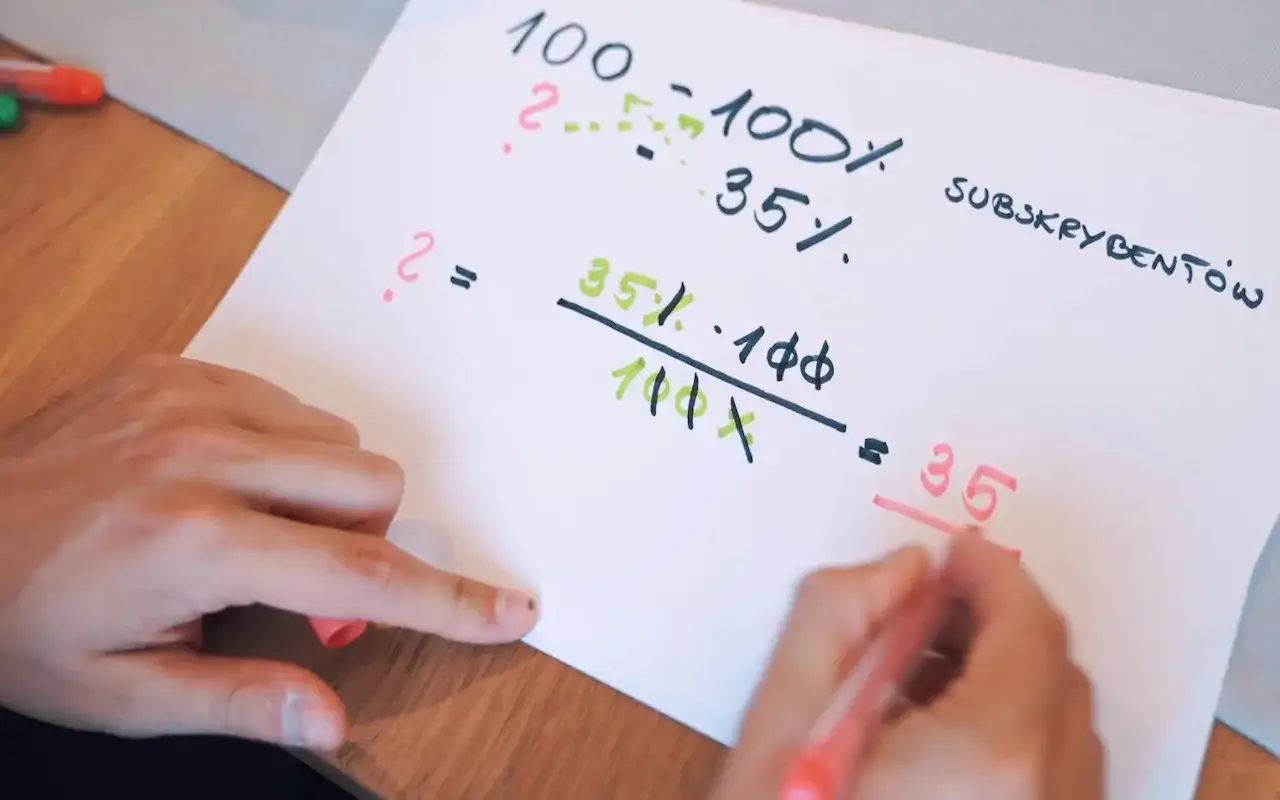 100 - 100% SUBSKRYBENTÓW
? - 35%
? = 35% · 100
100% = 35